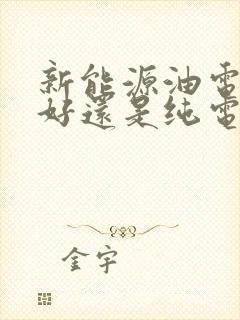 新能源油電
好還是纯電
金宇